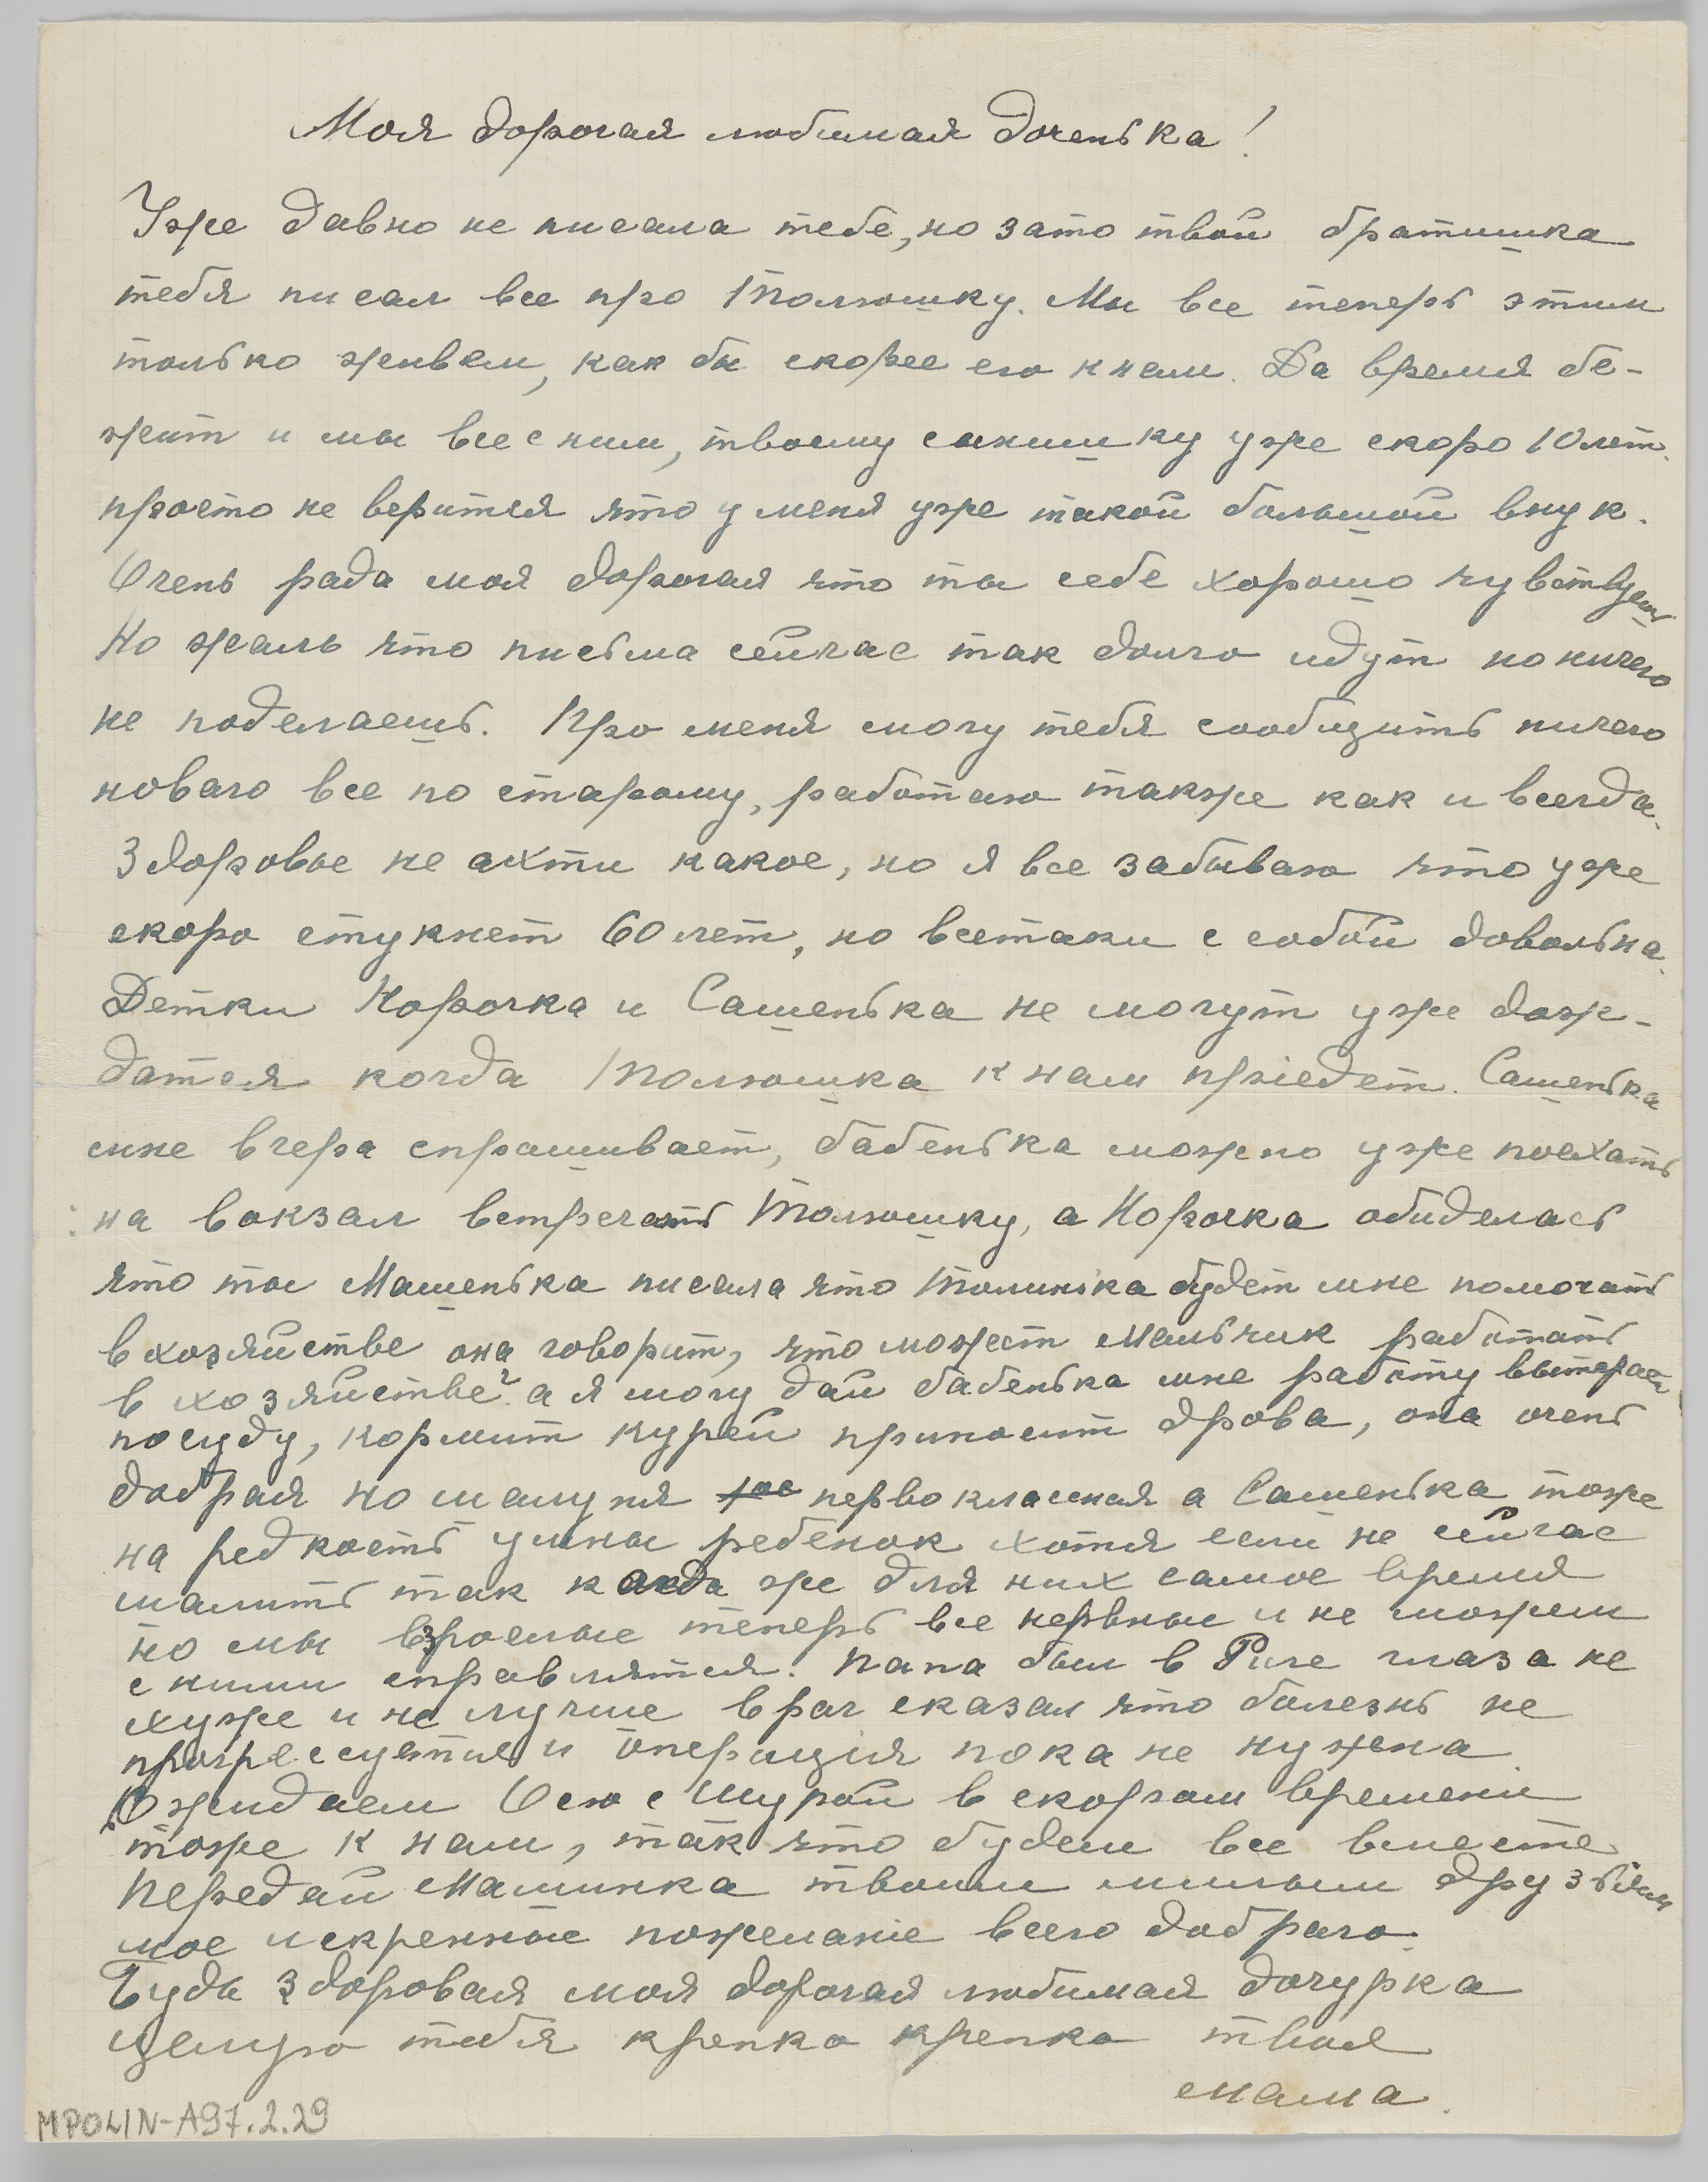 Моя дорогая любимая доченька!
Уже давно не писала тебе, но зато твой братишка
тебя писал все про Толюшку. Мы все теперь этим
только живем, как бы скорее его к нам. Да время бе-
жит и мы все с ним, твоему сынишку уже скоро 10 лет.
просто не верится что у меня уже такой большой внук.
Очень рада моя дорогая что ты себе хорошо чувствуешь
Но жаль что письма сейчас так долго идут но ничего
не поделаешь. Про меня могу тебя сообщить ничего
новаго все по старому, работаю также как и всегда.
Здоровье не ахти какое, но я все забываю что уже
скоро стукнет 60 лет, но всетаки с собой довольна.
Детки Норочка и Сашенька не могут уже дож-
датся когда Толюшка к нам приедет. Сашенька
мне вчера спрашивает, бабенька можно уже поехать
на вокзал встречать Толюшку, а Норочка обиделась
что ты Машенька писала что Толинька будет мне помогать
в хозяйстве она говорит, что может мальчик работать
в хозяйстве? а я могу дай бабенька мне работу вытерает
посуду, кормит курей приносит дрова, она очень
добрая но шалуня первоклассная а Сашенька тоже
на редкость умны ребенок хотя если не сейчас
шалить так когда же для них самое время
но мы взрослые теперь все нервные и не можем
с ними справлятся. Папа был в Риге глаза не
хуже и не лучше врач сказал что болезнь не
прогрессуется и операция пока не нужена
Ожидаем Осю с Шурой в скором времени
тоже к нам, так что будем все вместе
Передай Машинка твоим милым друзьям
мое искренное пожелание всего добраго.
Будь здоровая моя дорогая любимая дочурка
целую тебя крепко крепко твоя
мама.
MPOLIN-A97.2.29